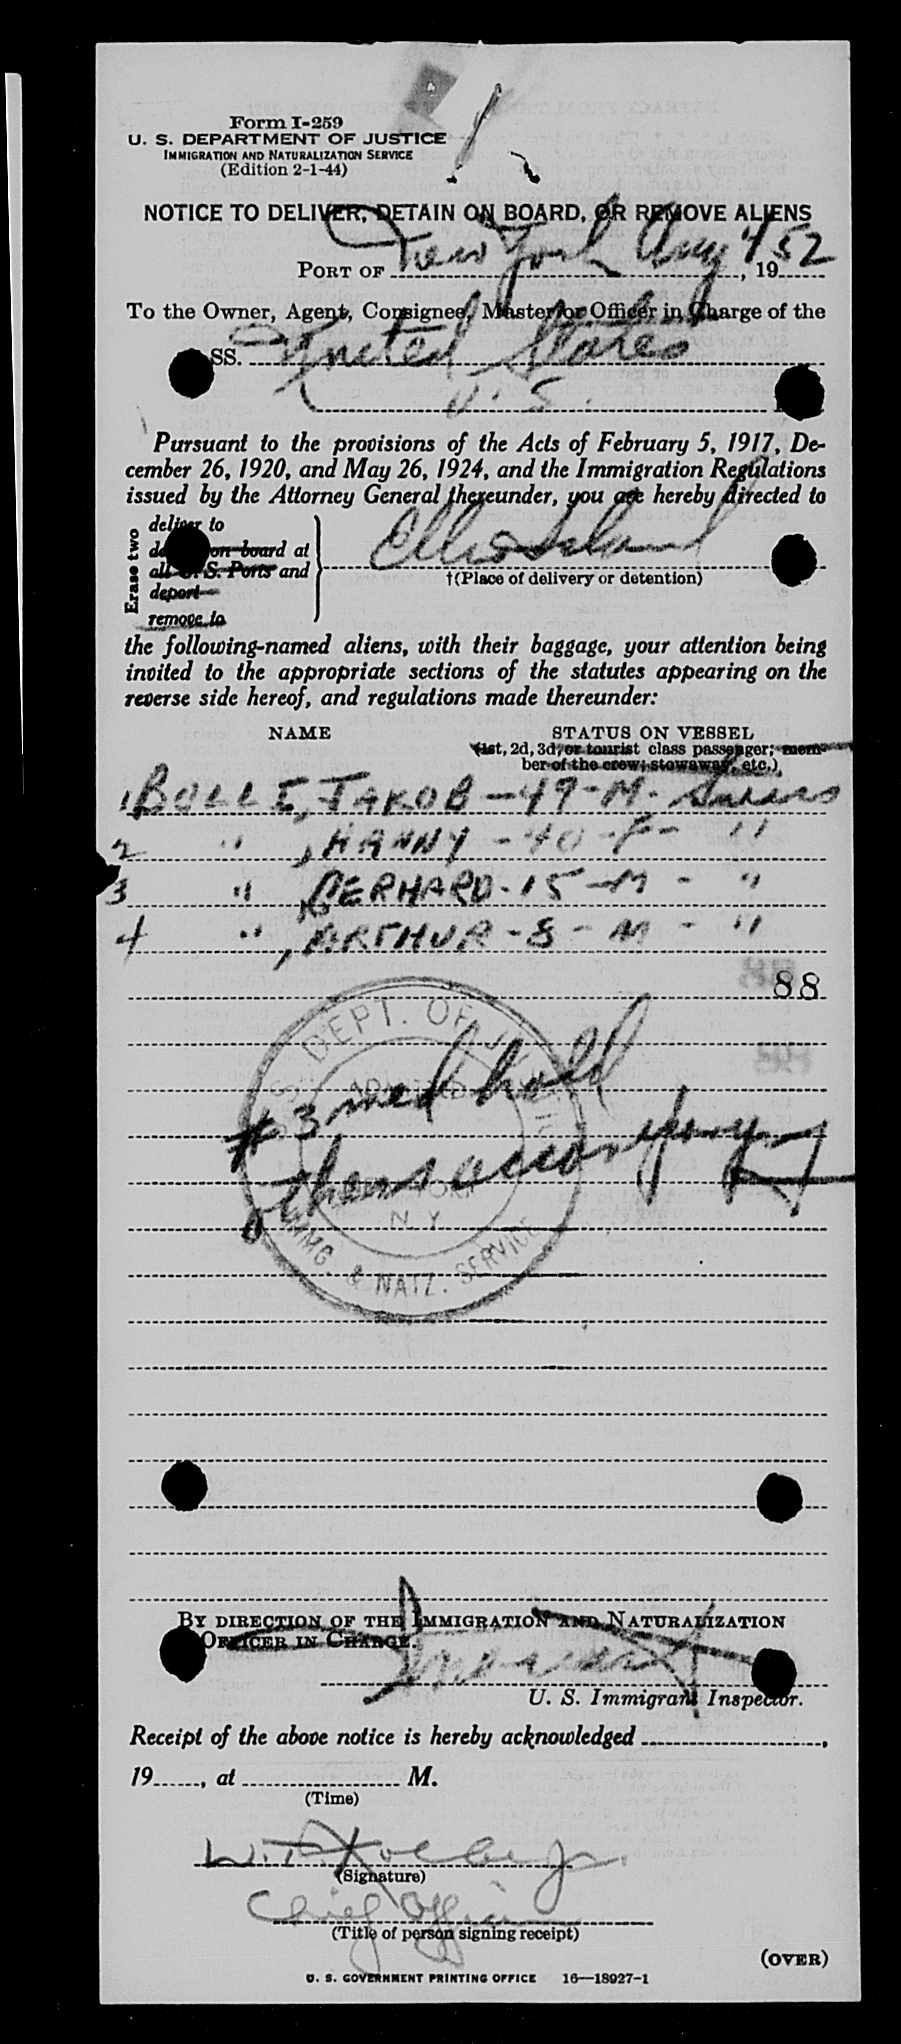 Form I-259
U. S. DEPARTMENT OF JUSTICE
IMMIGRATION AND NATURALIZATION SERVICE
(Edition 2-1-44)
NOTICE TO DELIVER, DETAIN ON BOARD, OR REMOVE ALIENS
PORT OF New York Aug 4, 1952
To the Owner, Agent, Consignee, Master or Officer in Charge of the
SS. United States
U. S.
Pursuant to the provisions of the Acts of February 5, 1917, De-
cember 26, 1920, and May 26, 1924, and the Immigration Regulations
issued by the Attorney General thereunder, you are hereby directed to
Erase two
deliver to
on board at
all U. S. Ports and
deport
remove to
Ellis Island
†(Place of delivery or detention)
the following-named aliens, with their baggage, your attention being
invited to the appropriate sections of the statutes appearing on the
reverse side hereof, and regulations made thereunder:
NAME STATUS ON VESSEL
(1st, 2d, 3d, or tourist class passenger; mem-
ber of the crew; stowaway, etc.)
1 BOLLE, JAKOB - 49 - M - Swiss
2 " , HANNY - 40 - F - "
3 " , GERHARD - 15 - M - "
4 " , ARTHUR - 8 - M - "
88
U. S. DEPT. OF JUSTICE
ADMITTED
# 3 med hold
others accompany
NEW YORK
N Y
IMMG. & NATZ. SERVICE
BY DIRECTION OF THE IMMIGRATION AND NATURALIZATION
OFFICER IN CHARGE.
U. S. Immigrant Inspector.
Receipt of the above notice is hereby acknowledged ,
19 , at M.
(Time)
W.
(Signature)
Chief Officer
(Title of person signing receipt)
(OVER)
U. S. GOVERNMENT PRINTING OFFICE 16—18927-1